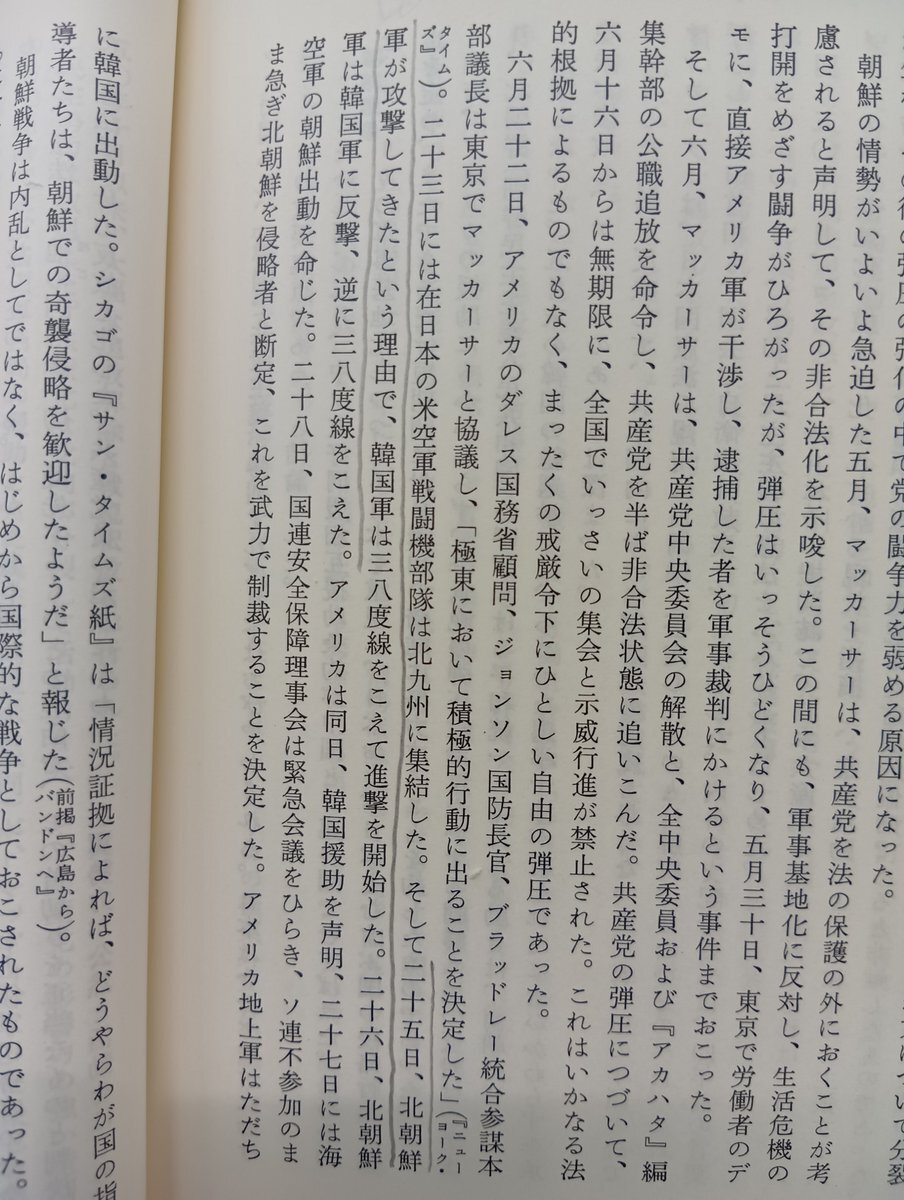 弾圧の強化の中で党の闘争力を弱める原因になった。
朝鮮の情勢がいよいよ急迫した五月、マッカーサーは、共産党を法の保護の外におくことが考
慮されると声明して、その非合法化を示唆した。この間にも、軍事基地化に反対し、生活危機の
打開をめざす闘争がひろがったが、弾圧はいっそうひどくなり、五月三十日、東京で労働者のデ
モに、直接アメリカ軍が干渉し、逮捕した者を軍事裁判にかけるという事件までおこった。
そして六月、マッカーサーは、共産党中央委員会の解散と、全中央委員および『アカハタ』編
集幹部の公職追放を命令し、共産党を半ば非合法状態に追いこんだ。共産党の弾圧につづいて、
六月十六日からは無期限に、全国でいっさいの集会と示威行進が禁止された。これはいかなる法
的根拠によるものでもなく、まったくの戒厳令下にひとしい自由の弾圧であった。
六月二十二日、アメリカのダレス国務省顧問、ジョンソン国防長官、ブラッドレー統合参謀本
部議長は東京でマッカーサーと協議し、「極東において積極的行動に出ることを決定した」(『ニューヨーク・
タイムズ』)。二十三日には在日本の米空軍戦闘機部隊は北九州に集結した。そして二十五日、北朝鮮
軍が攻撃してきたという理由で、韓国軍は三八度線をこえて進撃を開始した。二十六日、北朝鮮
軍は韓国軍に反撃、逆に三八度線をこえた。アメリカは同日、韓国援助を声明、二十七日には海
空軍の朝鮮出動を命じた。二十八日、国連安全保障理事会は緊急会議をひらき、ソ連不参加のま
ま急ぎ北朝鮮を侵略者と断定、これを武力で制裁することを決定した。アメリカ地上軍はただち
に韓国に出動した。シカゴの『サン・タイムズ紙』は「情況証拠によれば、どうやらわが国の指
導者たちは、朝鮮での奇襲侵略を歓迎したようだ」と報じた(前掲『広島からバンドンへ』)。
朝鮮戦争は内乱としてではなく、はじめから国際的な戦争としておこされたものであった。